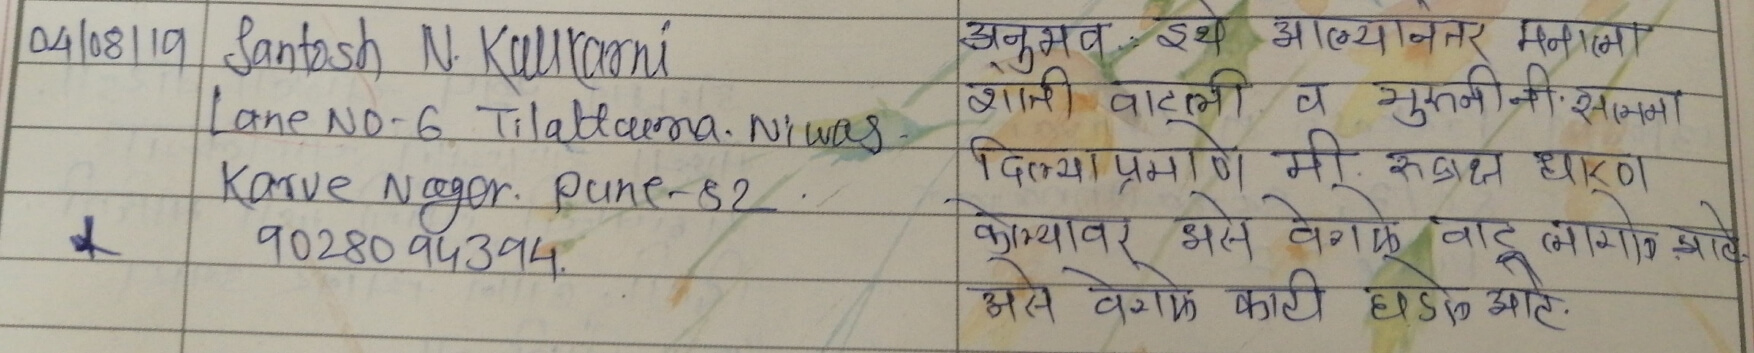 04/08/19 Santosh N. Kulkarni अनुभव : इथे आल्यानंतर मनाला
Lane NO-6 Tilattama. Niwas. शांती वाटली व गुरुजींनी. सांगना
Karve Nagar. Pune-52. दिल्याप्रमाणे मी. रुद्राक्ष धारण
9028094394. केल्यावर असे वेगळे वाटू लागले आहे.
असे वेगळे काही घडले आहे.